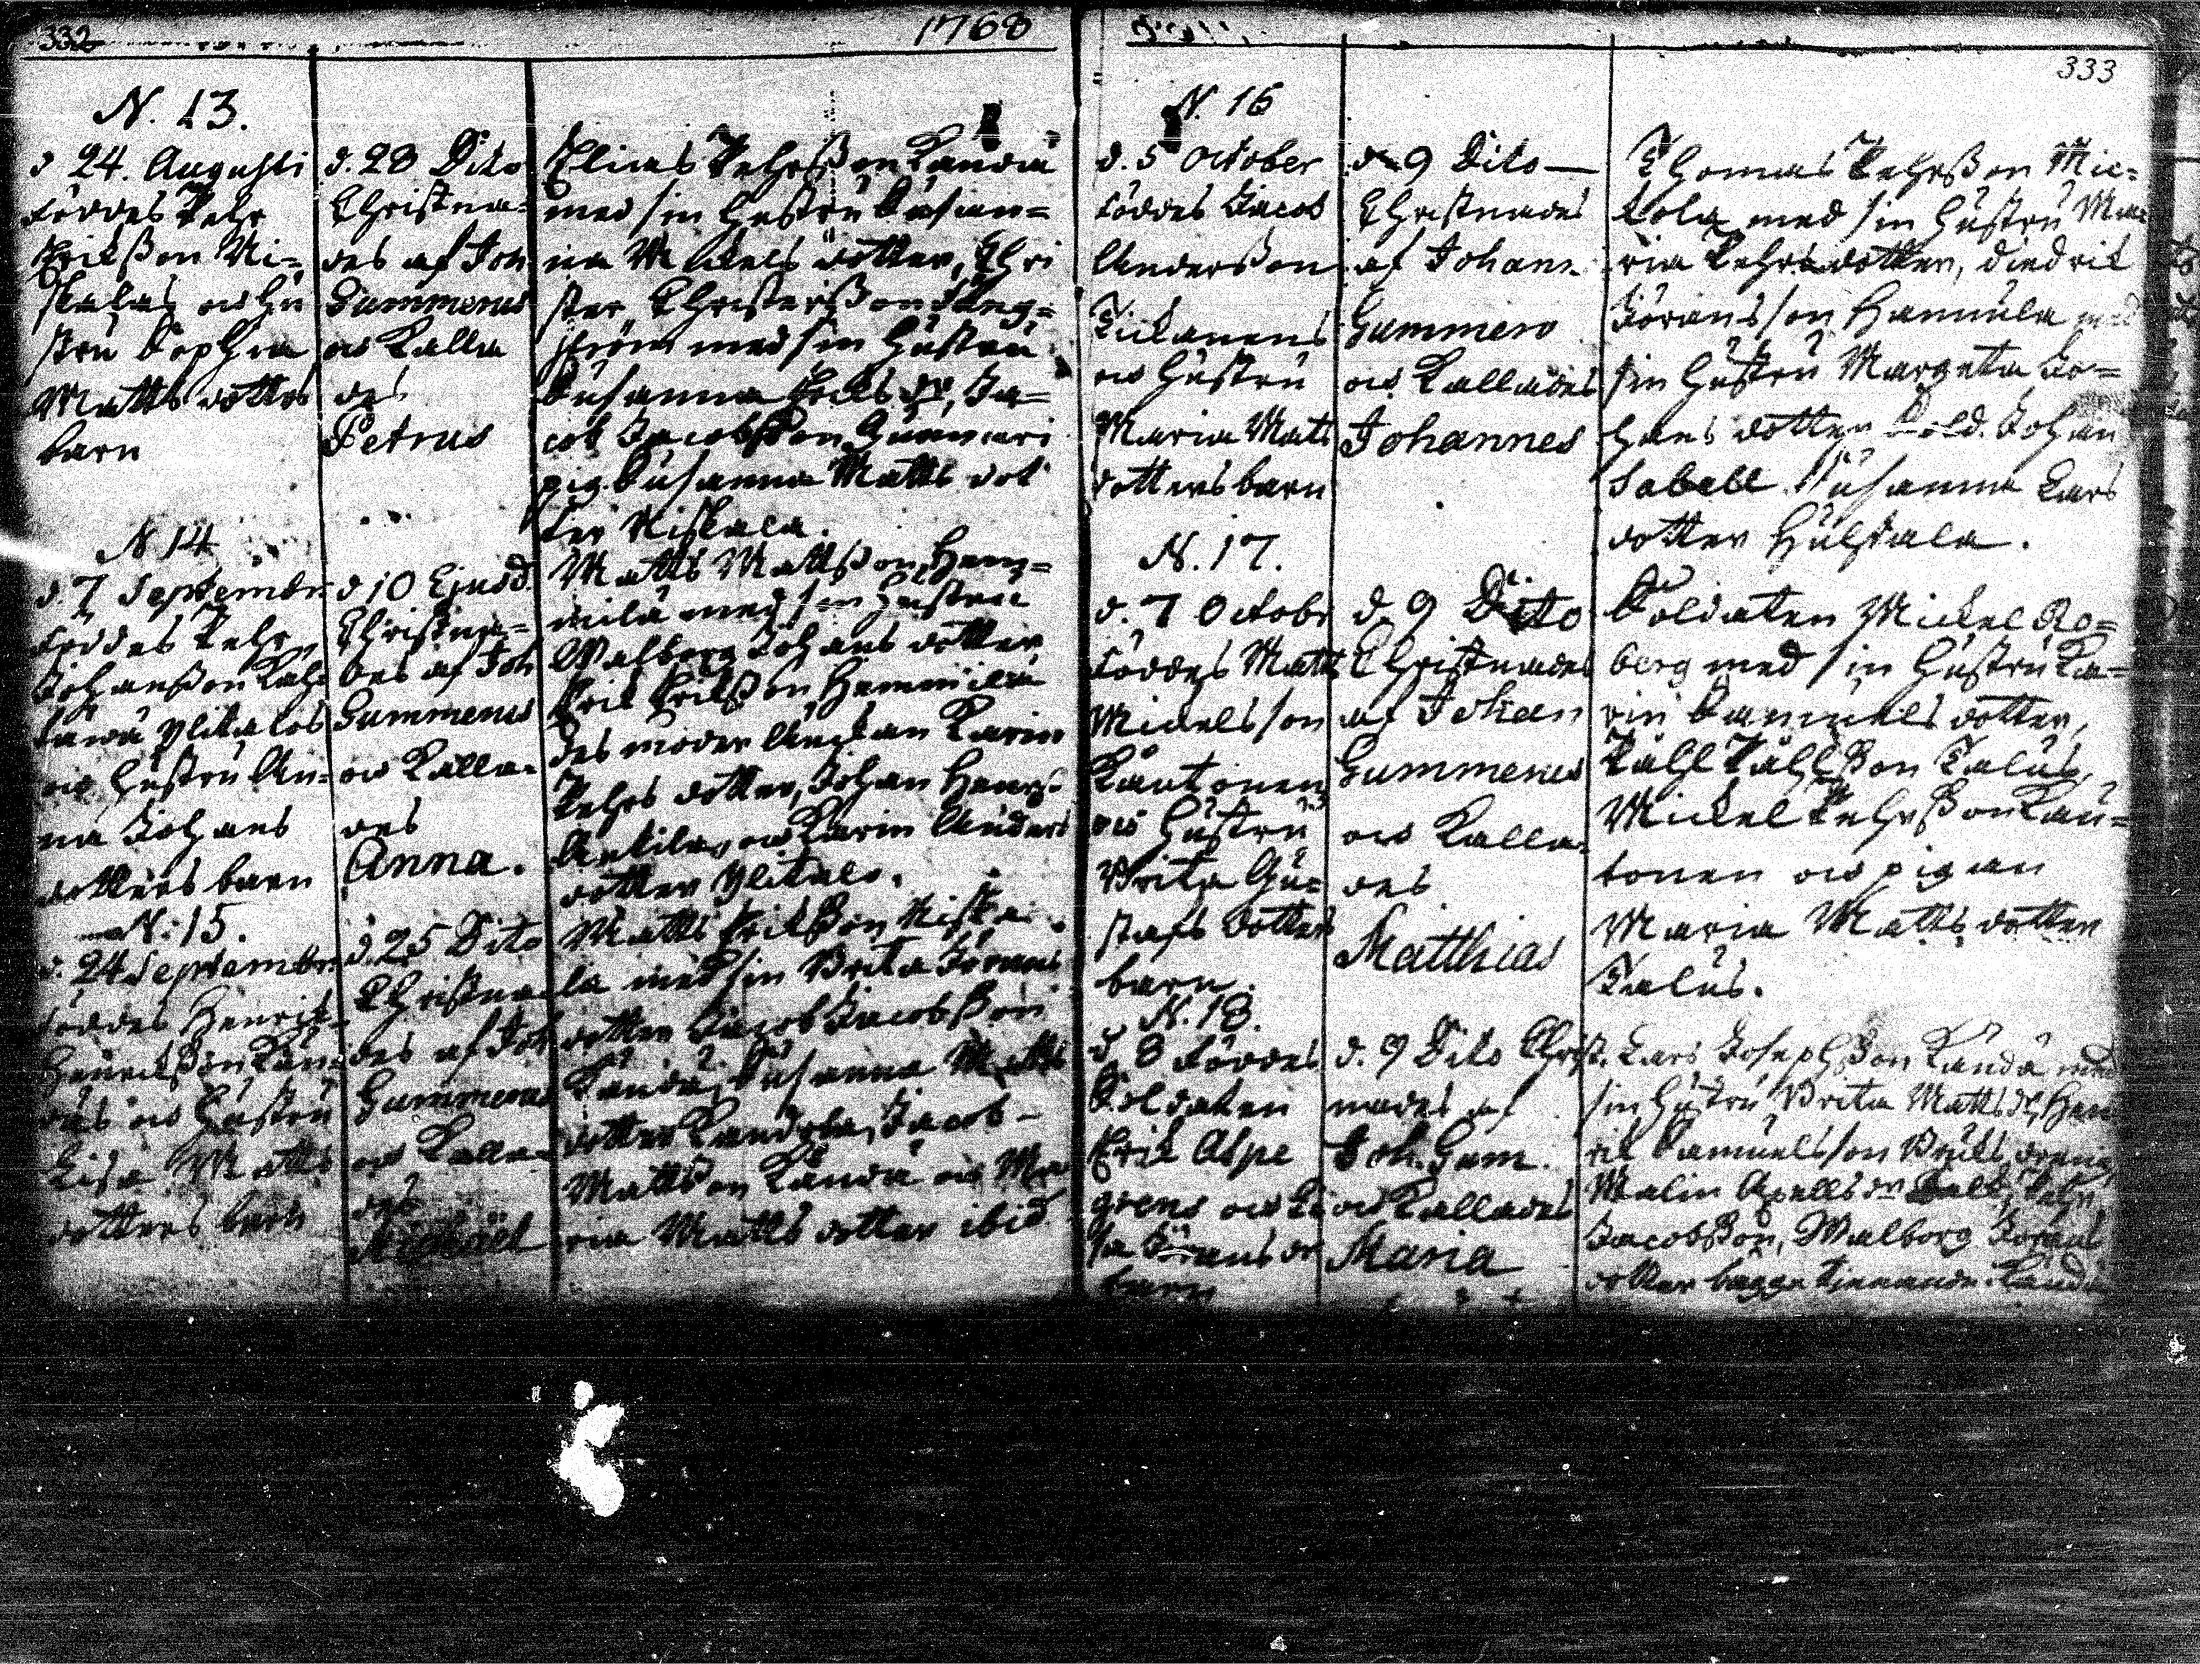 332
1768
N. 13.
d 24. Augusti
föddes Pehr
Erikßon Ni=
skalas och hu
stru Sophia
Matts dotters
barn
d. 28 Dito
Christna=
des af Joh.
Gummerus
och Kalla
des
Petrus
Elias Pehrßon Kandia
med sin hustru Susan=
na Mickels dotter, Chri
ster Christerßon Ling=
ström med sin hustru
Susanna Eriks dr, Ja=
cob Jacobßon Gunnari
pig. Susanna Matts dot
ter Niskala.
N 14
d. 7 Septembr
föddes Pehr
Johanßon
Ylitalos
och hustru An=
na Johans
dotters barn
d 10 Ejusd.
Christna=
des af Joh
Gummerus
och Kalla=
des
Anna.
Matts Mattsßon Hem=
milä med sin hustru
Walborg Johans dotter
Erik Erikßon Hemmilä
des moder Änckan Karin
Pehrs dotter, Johan Henrs=
Antila, och Karin Anders
dotter Ylitalo.
N: 15.
d. 24 Septembr.
föddes Henrik
Henrikßon Kan=
das och hustru
Lisa Matts
dotters barn
d. 25 Dito
Christna
des af Joh
Gummerus
och Kalla=
des
Michäel
Matts Erikßon Niska
la med sin Brita Jörans
dotter Jacob Jacobßon
Kanda, Susanna Matts
dotter Jacob
Mattsßon Kanda och Ma
ria Matts dotter ibid
333
N. 16
d. 5 October
föddes Jacob
Anderßon
Tickanens
och hustru
Maria Matts
dotters barn
d. 9 Dito
Christnades
af Johan.
Gummero
och Kallades
Johannes
Thomas Pehrßon Mic=
kola med sin hustru Ma
ria Pehrs dotter, Diedrik
Göransson Hannula med
sin hustru Margeta Jo=
hans dotter Sold. Johan
Sabell. Susanna Lars
dotter Huhtala.
N. 17.
d. 7 Octobr
föddes Matts
Mickelsson
Kautonens
och hustru
Brita Gu=
stafs dotters
barn.
d. 9 Dito
Christnades
af Johan
Gummerus
och Kalla=
des
Matthias
Soldaten Mickel Ro=
berg med sin hustru Ka=
rin Samuels dotter,
Påhl Påhlßon Talus,
Mickel Pehrßon Kau=
tonen och pigan
Maria Matts dotter
Talus.
N. 18.
d. 8 föddes
Soldaten
Erik Aspe
grens och Li
sa Jörans dr
barn
d. 9 Dito Christ.
nades af
Joh. Gum.
och Kallades
Maria
Lars Josephßon Kanda med
sin hustru Brita Matts dr, Hen
rik Samuelsson Bruks dreng
Malin Axells dr Pehr
Jacobßon, Walborg Jörans
dotter bägge tienande Kanda